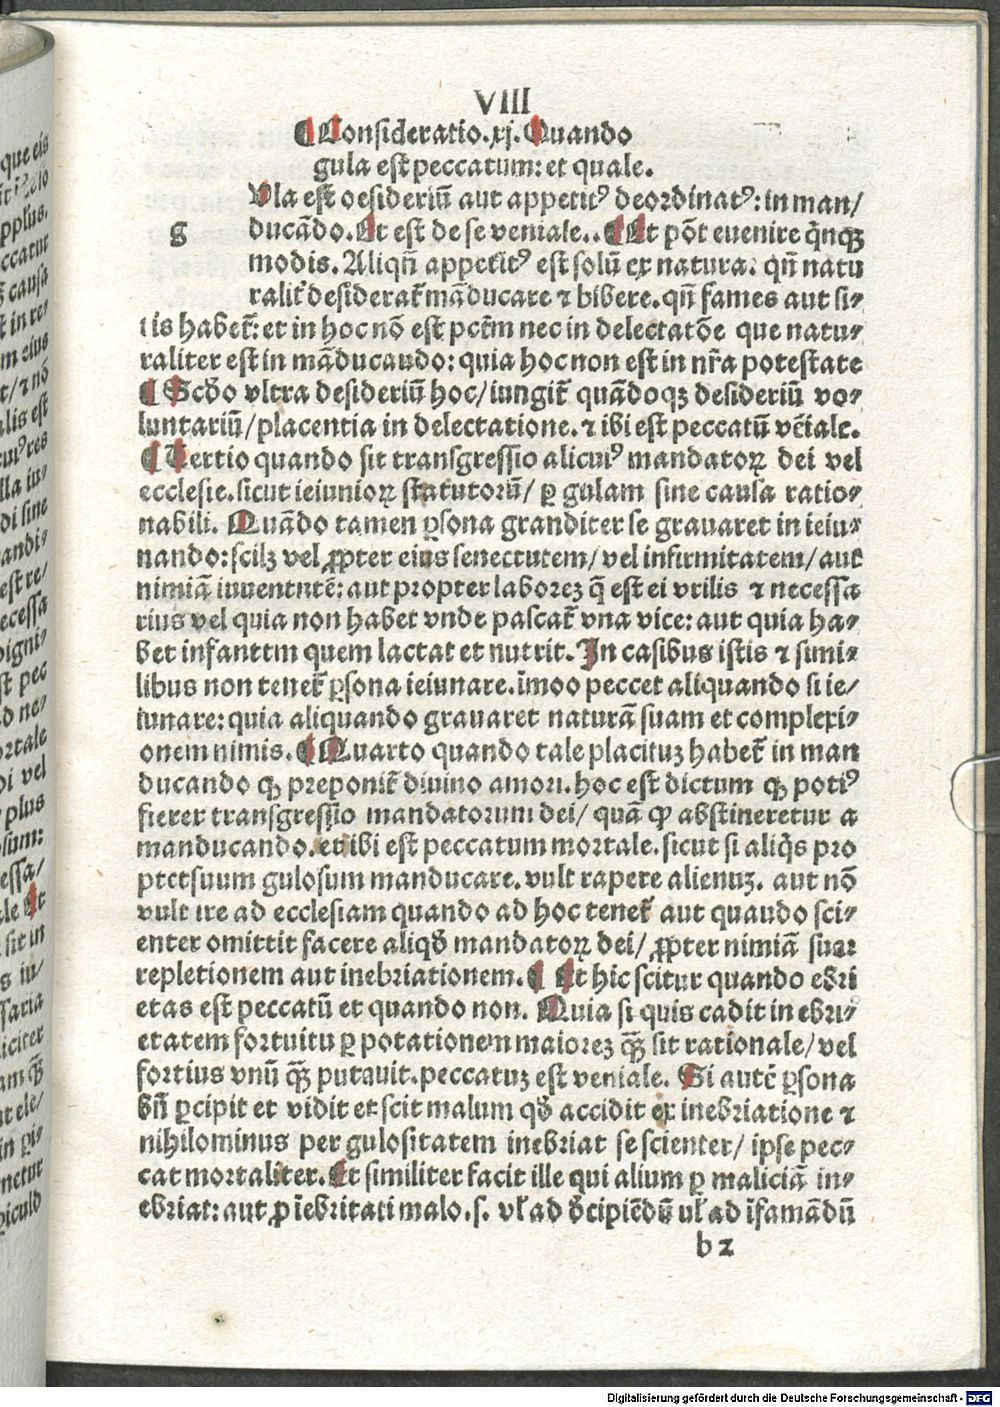 VIII
¶ Consideratio.xj. Quando
gula est peccatum: et quale.
g
Ula est desideriū aut appetitꝰ deordinatꝰ: in man/
ducādo. Et est de se veniale.. ¶ Et pōt euenire qͥnqꝫ
modis. Aliqn̄ appetitꝰ est solū ex natura: qn̄ natu
ralit̃ desiderat̃ māducare ⁊ bibere. qn̄ fames aut si⸗
tis habet̃: et in hoc nō est pct̄m nec in delectatōe que natu⸗
raliter est in māducaudo: quia hoc non est in nr̄a potestate
¶ Scďo vltra desideriū hoc/ iungit̃ quādoqꝫ desideriū vo⸗
luntariū/ placentia in delectatione. ⁊ ibi est peccatū vēiale.
¶ Tertio quando fit transgressio alicuiꝰ mandatoꝝ dei vel
ecclesie. sicut ieiunioꝝ statutorū/ ꝑ gulam sine causa ratio⸗
nabili. Quādo tamen ꝑsona granditer se grauaret in ieiu⸗
nando: scilꝫ vel ꝓpter eius senectutem/ vel infirmitatem/ aut
nimiā iuuentutē: aut propter laboreꝫ q̄ est ei vtilis ⁊ necessa
rius vel quia non habet vnde pascat̃ vna vice: aut quia ha⸗
bet infantem quem lactat et nutrit. In casibus istis ⁊ simi⸗
libus non tenet̃ ꝑsona ieiunare. īmoo peccet aliquando si ie/
iunare: quia aliquando grauaret naturā suam et complexi⸗
onem nimis. ¶ Quarto quando tale placituꝫ habet̃ in man
ducando ꝙ preponit̃ diuino amori. hoc est dictum ꝙ potiꝰ
fieret transgressio mandatorum dei/ quā ꝙ abstineretur a
manducando. et ibi est peccatum mortale. sicut si aliqͥs pro
ptetsuum gulosum manducare. vult rapere alienuꝫ. aut nō
vult ire ad ecclesiam quando ad hoc tenet̃ aut quaudo sci⸗
enter omittit facere aliqď mandatoꝝ dei/ ꝓpter nimiā suaz
repletionem aut inebriationem. ¶ Et hic scitur quando ebri
etas est peccatū et quando non. Quia si quis cadit in ebri⸗
etatem fortuitu ꝑ potationem maioreꝫ qꝫ̄ sit rationale/ vel
fortius vnū qꝫ̄ putauit. peccatuꝫ est veniale. Si autē ꝑsona
bn̄ ꝑcipit et vidit et scit malum qď accidit ex inebriatione ⁊
nihilominus per gulositatem inebriat se scienter/ ipse pec⸗
cat mortaliter. Et similiter facit ille qui alium ꝑ maliciā in⸗
ebriat: aut ꝓ īebritati malo. s. vl̃ ad ďcipiēdū vl̃ ad īfamādū
b2
Digitalisierung gefördert durch die Deutsche Forschungsgemeinschaft - DFG